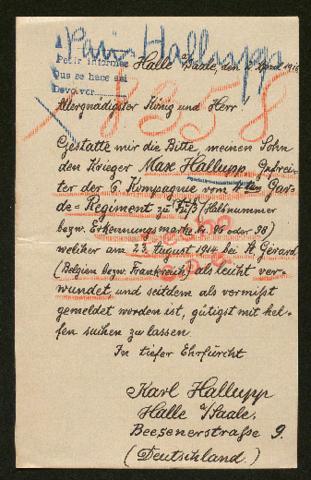 Paris Hallupp
Pedir informes
Que se hace así
Devolver
Halle a/Saale, den April 1916
8358
Allergnädigster König und Herr!
Gestatte mir die Bitte, meinen Sohn
den Krieger Max Hallupp Gefrei-
ter der 6. Kompagnie vom 4ten Gar-
de-Regiment z/F (Halsnummer
bezw. Erkennungsmarke Nr. 96 oder 98)
welcher am 23. August 1914 bei Girard
(Belgien bezw. Frankreich) als leicht ver-
wundet, und seitdem als vermißt
gemeldet worden ist, gütigst mit hel-
fen suchen zu lassen.
In tiefer Ehrfurcht
Karl Hallupp
Halle a/Saale.
Beesenerstraße 9.
(Deutschland.)